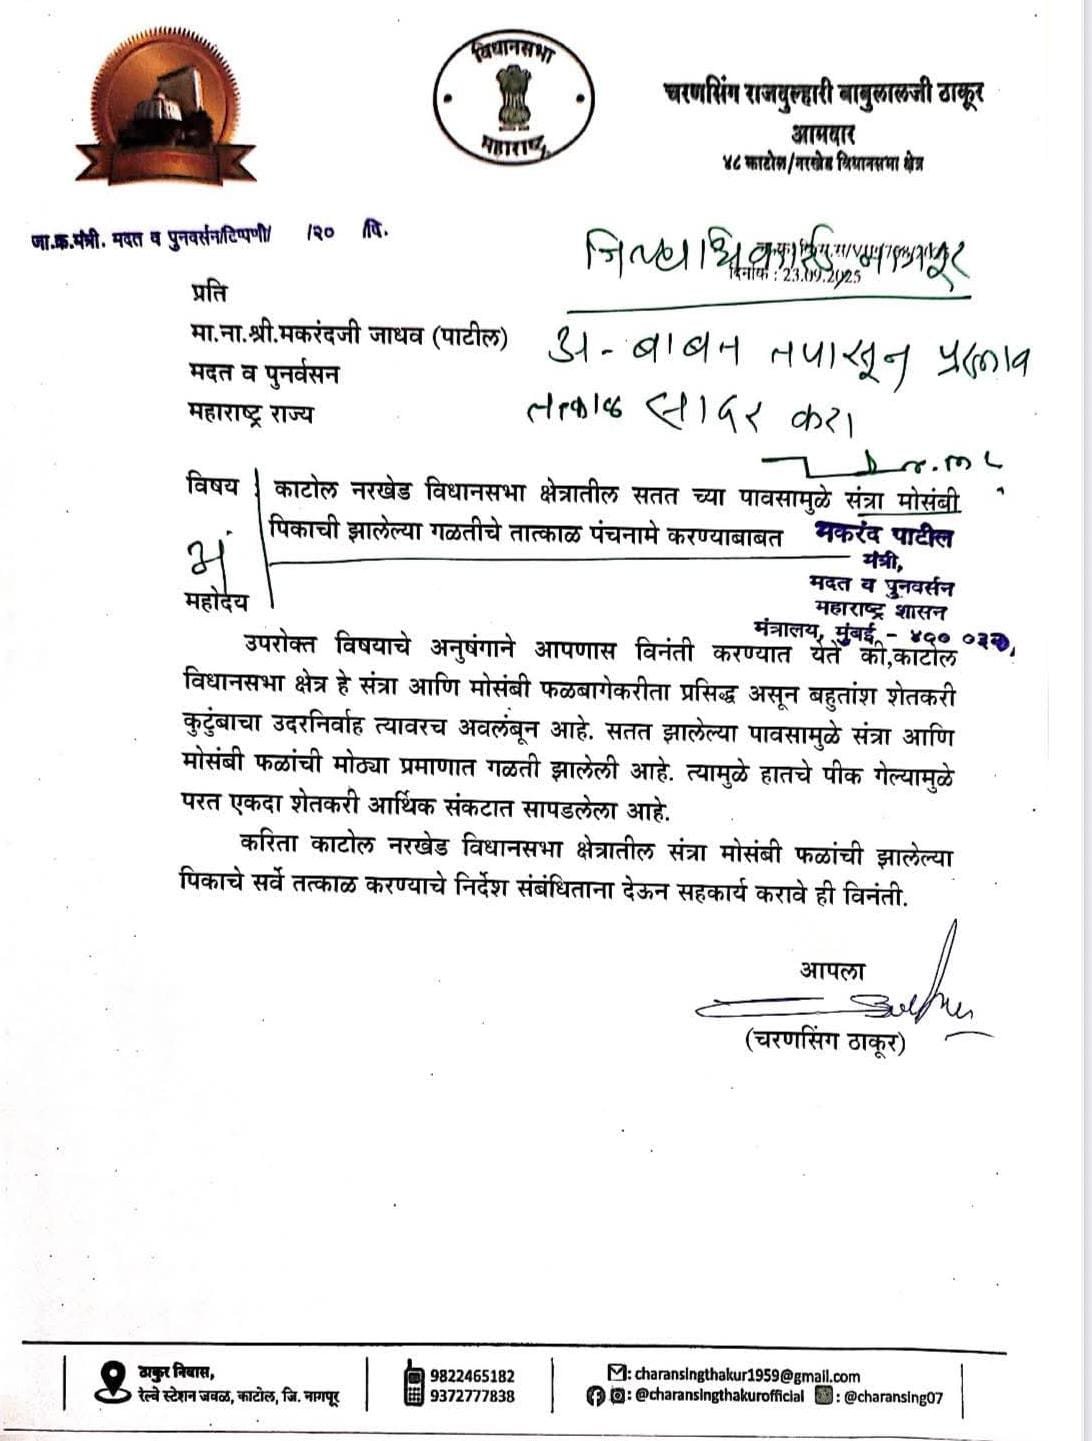 विधानसभा
महाराष्ट्र
चरणसिंग राजदुल्हारी बाबुलालजी ठाकूर
आमदार
४८ काटोल/नरखेड विधानसभा क्षेत्र
जा.क्र.मंत्री. मदत व पुनवर्सन/टिप्पणी/ /२० /वि.
जिल्हाधिकारी नागपूर
दिनांक : 23.09.2025
प्रति
मा.ना.श्री.मकरंदजी जाधव (पाटील)
मदत व पुनर्वसन
महाराष्ट्र राज्य
अ - बाबत तपासून प्रस्ताव
तत्काळ सादर करा
विषय काटोल नरखेड विधानसभा क्षेत्रातील सतत च्या पावसामुळे संत्रा मोसंबी
पिकाची झालेल्या गळतीचे तात्काळ पंचनामे करण्याबाबत
मकरंद पाटील
मंत्री,
मदत व पुनवर्सन
महाराष्ट्र शासन
मंत्रालय, मुंबई -
महोदय
उपरोक्त विषयाचे अनुषंगाने आपणास विनंती करण्यात येते की,काटोल
विधानसभा क्षेत्र हे संत्रा आणि मोसंबी फळबागेकरीता प्रसिद्ध असून बहुतांश शेतकरी
कुटुंबाचा उदरनिर्वाह त्यावरच अवलंबून आहे. सतत झालेल्या पावसामुळे संत्रा आणि
मोसंबी फळांची मोठ्या प्रमाणात गळती झालेली आहे. त्यामुळे हातचे पीक गेल्यामुळे
परत एकदा शेतकरी आर्थिक संकटात सापडलेला आहे.
करिता काटोल नरखेड विधानसभा क्षेत्रातील संत्रा मोसंबी फळांची झालेल्या
पिकाचे सर्वे तत्काळ करण्याचे निर्देश संबंधिताना देऊन सहकार्य करावे ही विनंती.
आपला
(चरणसिंग ठाकूर)
ठाकुर निवास,
रेल्वे स्टेशन जवळ, काटोल, जि. नागपूर
9822465182
9372777838
: charansingthakur1959@gmail.com
: @charansingthakurofficial : @charansing07